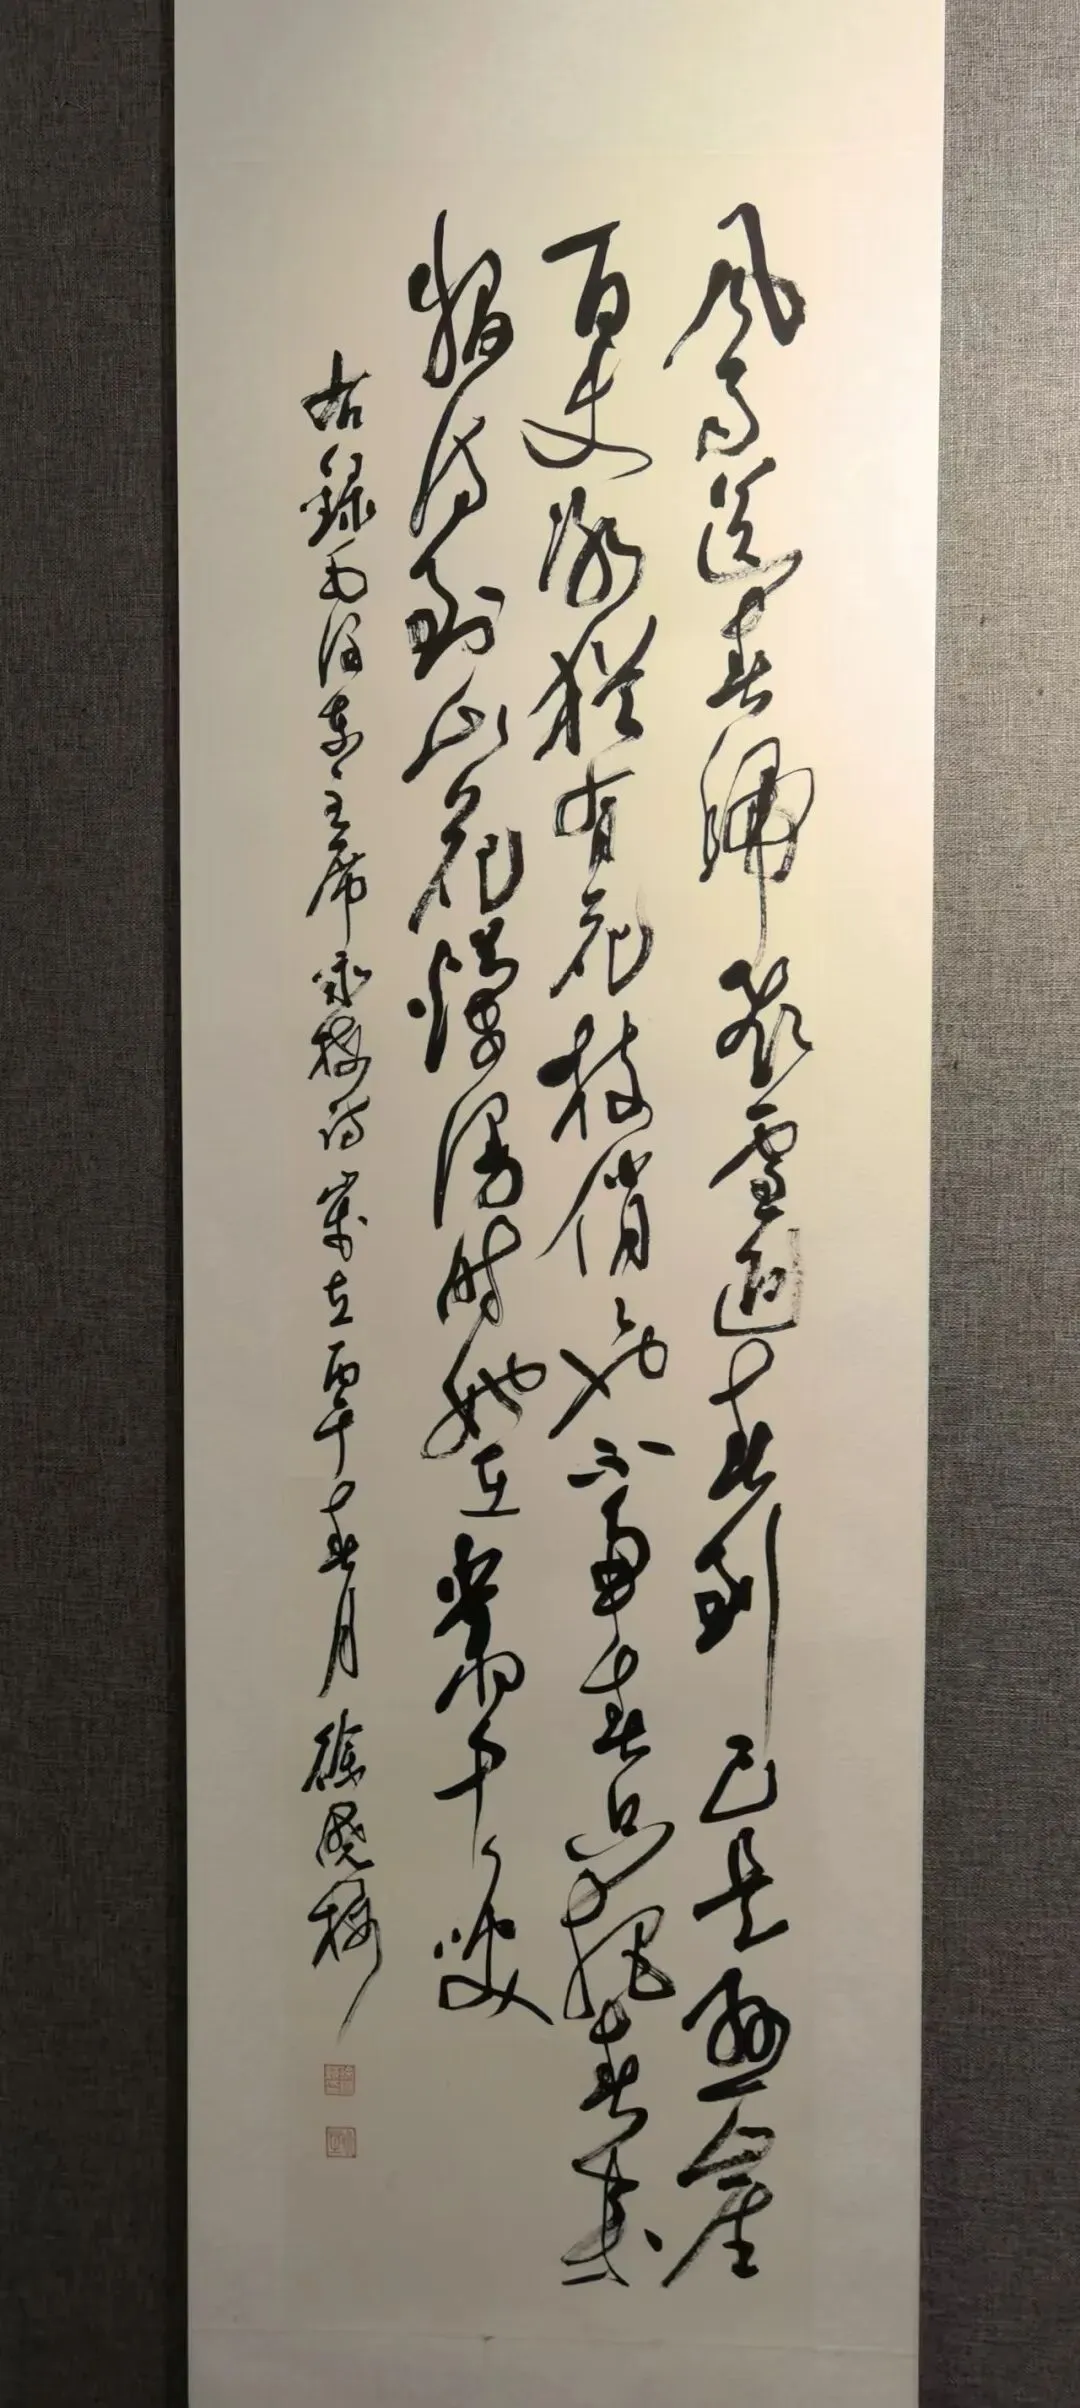 風雨送春歸飛雪迎春到已是懸崖
百丈冰猶有花枝俏〻也不爭春只把春來
報待到山花爛漫時她在叢中笑
右録毛澤東主席詠梅詩歲在丙午春月徐晓梅